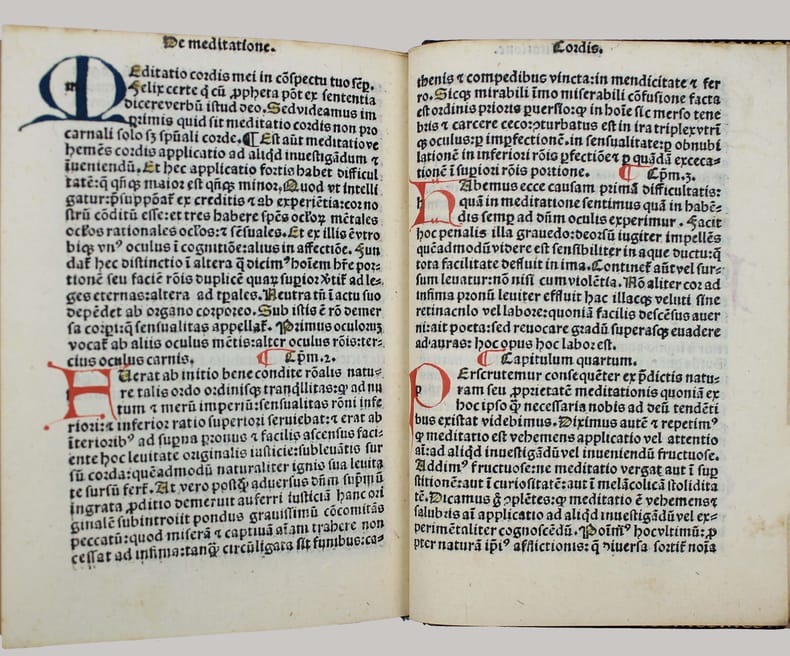 De meditatione.
MEditatio cordis mei in cõspectu tuo sẽp.
Felix certe q̃ cũ ꝓpheta põt ex sententia
dicere verbũ istud deo. Sed videamus im
primis quid sit meditatio cordis non pro
carnali solo sꝫ sp̃uali corde. ¶ Est aũt meditatio ve
hemẽs cordis applicatio ad aliqd inuestigãdum ⁊
ĩueniendũ. Et hec applicatio fortis habet difficul
tatẽ: q̃ qñqꝫ maior est qñqꝫ minor. Quod vt intelli
gatur: p̃suppoãt ex creditis ⁊ ab experiẽtia: cor no
strũ cõditũ esse: et tres habere spẽs ocl'oꝝ mẽtales
ocl'os rationales ocl'os: ⁊ sẽsuales. Et ex illis ẽvtro
biqꝫ vnꝰ oculus ĩ cognitiõe: alius in affectiõe. Fun
dat̃ hec distinctio ĩ altera q̃ dicimꝰ hoĩem hr̃e por-
tionẽ seu faciẽ rõis duplicẽ quaꝝ supior ad le-
ges eternas: altera ad tp̃ales. Neutra tñ ĩ actu suo
depẽdet ab organo corporeo. Sub istis ẽ rõ demer
sa corp̃i: q̃ sensualitas appellat̃. Primus oculoruꝫ
vocat̃ ab aliis oculus mẽtis: alter oculus rõis: ter-
cius oculus carnis. ¶ Cp̃m. 2.
HUerat ab initio bene condite rõalis natu-
re talis ordo ordinisqꝫ tranq̃llitas: ꝙ ad nu
tum ⁊ merũ imperiũ: sensualitas rõni infe
riori: ⁊ inferior ratio superiori seruiebat: ⁊ erat ab
ĩterioribꝰ ad sup̃na pronus ⁊ facilis ascensus faci-
ente hoc leuitate originalis iusticie: subleuãtis sur
sũ corda: quẽadmodũ naturaliter ignis sua leuita
te sursũ fert̃. At vero postq̃ꝫ aduersus dñm sup̃mũ
ingrata ꝓditio demeruit auferri iusticiã hanc ori
ginalẽ subintroiit pondus grauissimũ cõcomitãs
peccatũ: quod miserã ⁊ captiuã aĩam trahere non
cessat ad infima: tanq̃ circũligata sit funibus: ca-
Cordis.
thenis ⁊ compedibus vincta: in mendicitate ⁊ fer
ro. Sicqꝫ mirabili ĩmo miserabili cõfusione facta
est ordinis prioris ꝑuersio: ꝙ in hoĩe sic merso tene
bris ⁊ carcere ceco: ꝓturbatus est in ira triplex vtriꝰ
qꝫ oculus: ꝑ imꝑfectionẽ. in sensualitate: ꝑ obnubi
lationẽ in inferiori rõis ꝑfectiõe ⁊ ꝑ quãdã exceca-
tionẽ ĩ supiori rõis portione. ¶ Cp̃m. 3.
HAbemus ecce causam primã difficultatis:
quã in meditatione sentimus quã in habẽ-
dis semꝑ ad dñm oculis experimur. Facit
hoc penalis illa grauedo: deorsũ iugiter impellẽs
quẽadmodũ videre est sensibiliter in aque ductu: ꝙ
tota facilitate defluit in ima. Continet̃ aũt vel sur-
sum leuatur: nõ nisi cum violẽtia. Nõ aliter cor ad
infima pronũ leuiter effluit hac illacqꝫ veluti sine
retinaclo vel labore: quoniã facilis descẽsus auer
ni: ait poeta: sed reuocare gradũ superasqꝫ euadere
ad auras: hoc opus hic labor est.
¶ Capitulum quartum.
PErscrutemur consequẽter ex p̃dictis natu-
ram seu ꝓprietatẽ meditationis quoniã ex
hoc ipso ꝙ necessaria nobis ad deũ tendẽti
bus existat videbimus. Diximus autẽ ⁊ repetimꝰ
ꝙ meditatio est vehemens applicatio vel attentio
aĩ: ad aliqd inuestigãdũ vel inueniendũ fructuose.
Addimꝰ fructuose: ne meditatio vergat aut ĩ supꝰ
stitionẽ: aut ĩ curiositatẽ: aut ĩ melãcolicã stolidita
tẽ. Dicamus g̃ ꝯpletẽs: ꝙ meditatio ẽ vehemens ⁊
salubris aĩ applicatio ad aliqd inuestigãdũ vel ex-
perimẽtaliter cognoscẽdũ. Poĩmꝰ hoc vltimũ: ꝓ
pter naturã ip̃iꝰ afflictionis: q̃ diuersa sortit̃ noĩa